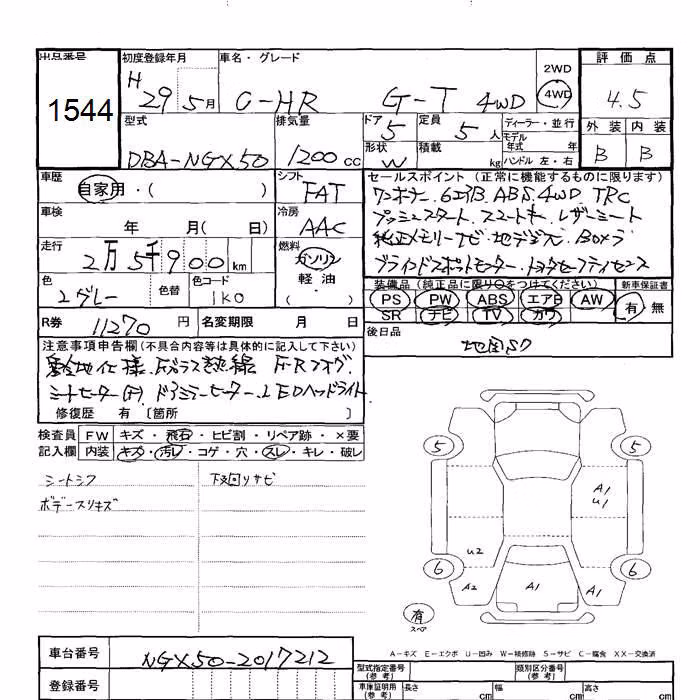 出品番号 初度登録年月 車名・グレード 2WD 評価点
1544 H 29 5月 C-HR G-T 4WD 4WD 4.5
型式 排気量 ドア 定員 ディーラー・並行 外装 内装
DBA-NGX50 1200cc 5 5人 モデル年式 年 B B
形状 積載 ハンドル 左・右
W kg
車歴 シフト セールスポイント (正常に機能するものに限ります)
自家用・( ) FAT ワンオーナー. 6エアB. ABS. 4WD. TRC
車検 冷房 プッシュスタート. スマートキー. レザーシート
年 月( 日) AAC 純正メモリーナビ・地デジ
走行 燃料
2万5千900km ガソリン ブラインドスポットモニター・トヨタセーフティセンス
色 色替 色コード 軽油 装備品 (純正品に限り○をつけてください) 新車保証書
グレー 1K0 ・( ) PS PW ABS エアB AW 有 無
SR ナビ TV カワ
R券 11270円 名変期限 月 日 後日品
注意事項申告欄(不具合内容等は具体的に記入して下さい)
寒冷地仕様. Fガラス熱線 F・Rフォグ
シートヒーター(F) ドアミラーヒーター. LEDヘッドライト
修復歴 有 〔箇所 〕
検査員 FW キズ・飛石・ヒビ割・リペア跡・×要
記入欄 内装 キズ・汚レ・コゲ・穴・スレ・キレ・破レ
シートシワ 下回りサビ
ボデースリキズ
5 5
A1
U1
U2
6 6
A2 A1 A1
有
スペア
A-キズ E-エクボ U-凹み W-補修跡 S-サビ C-腐食 XX-交換済
車台番号 NGX50-2017212
登録番号
型式指定番号(参考) 類別区分番号(参考)
車庫証明用(参考) 長さ cm 幅 cm 高さ cm